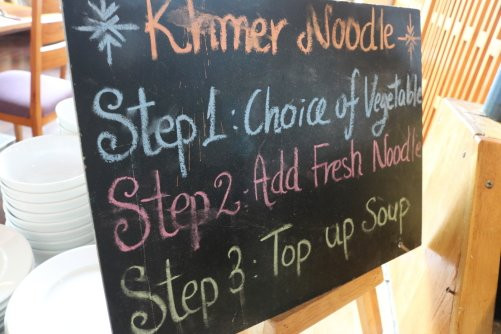 Khmer Noodle
Step 1: Choice of Vegetable
Step 2: Add Fresh Noodle
Step 3: Top up Soup